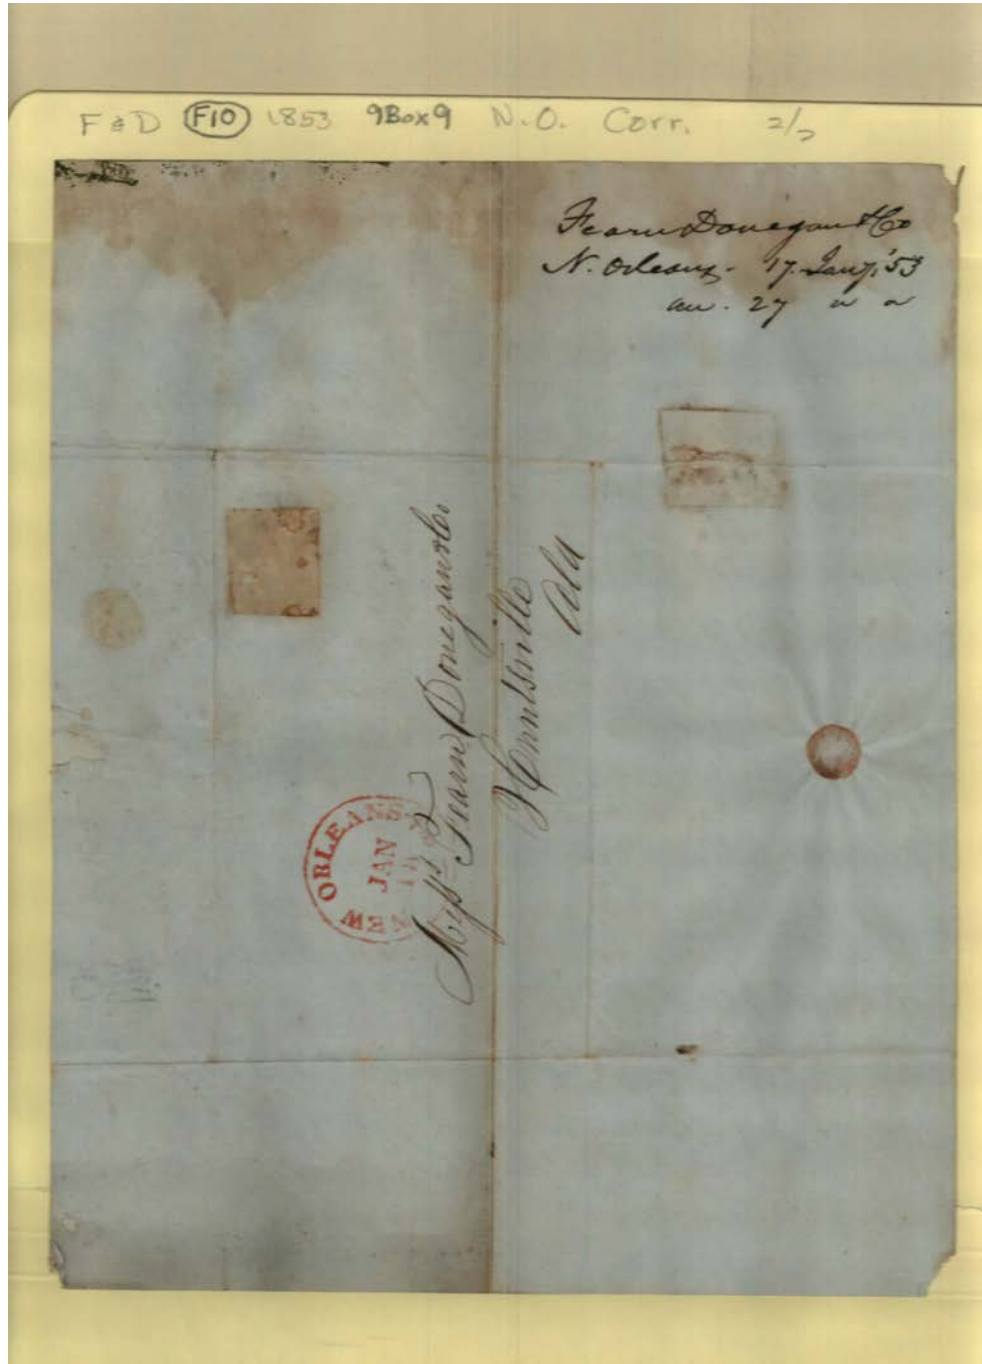 F & D F10 1853 9Box9 N.O. Corr. 2/2
Fearn Donegan & Co
N. Orleans - 17 Jany, '53
an. 27 " "
Messrs Fearn Donegan & Co
Huntsville
Ala
NEW ORLEANS
JAN